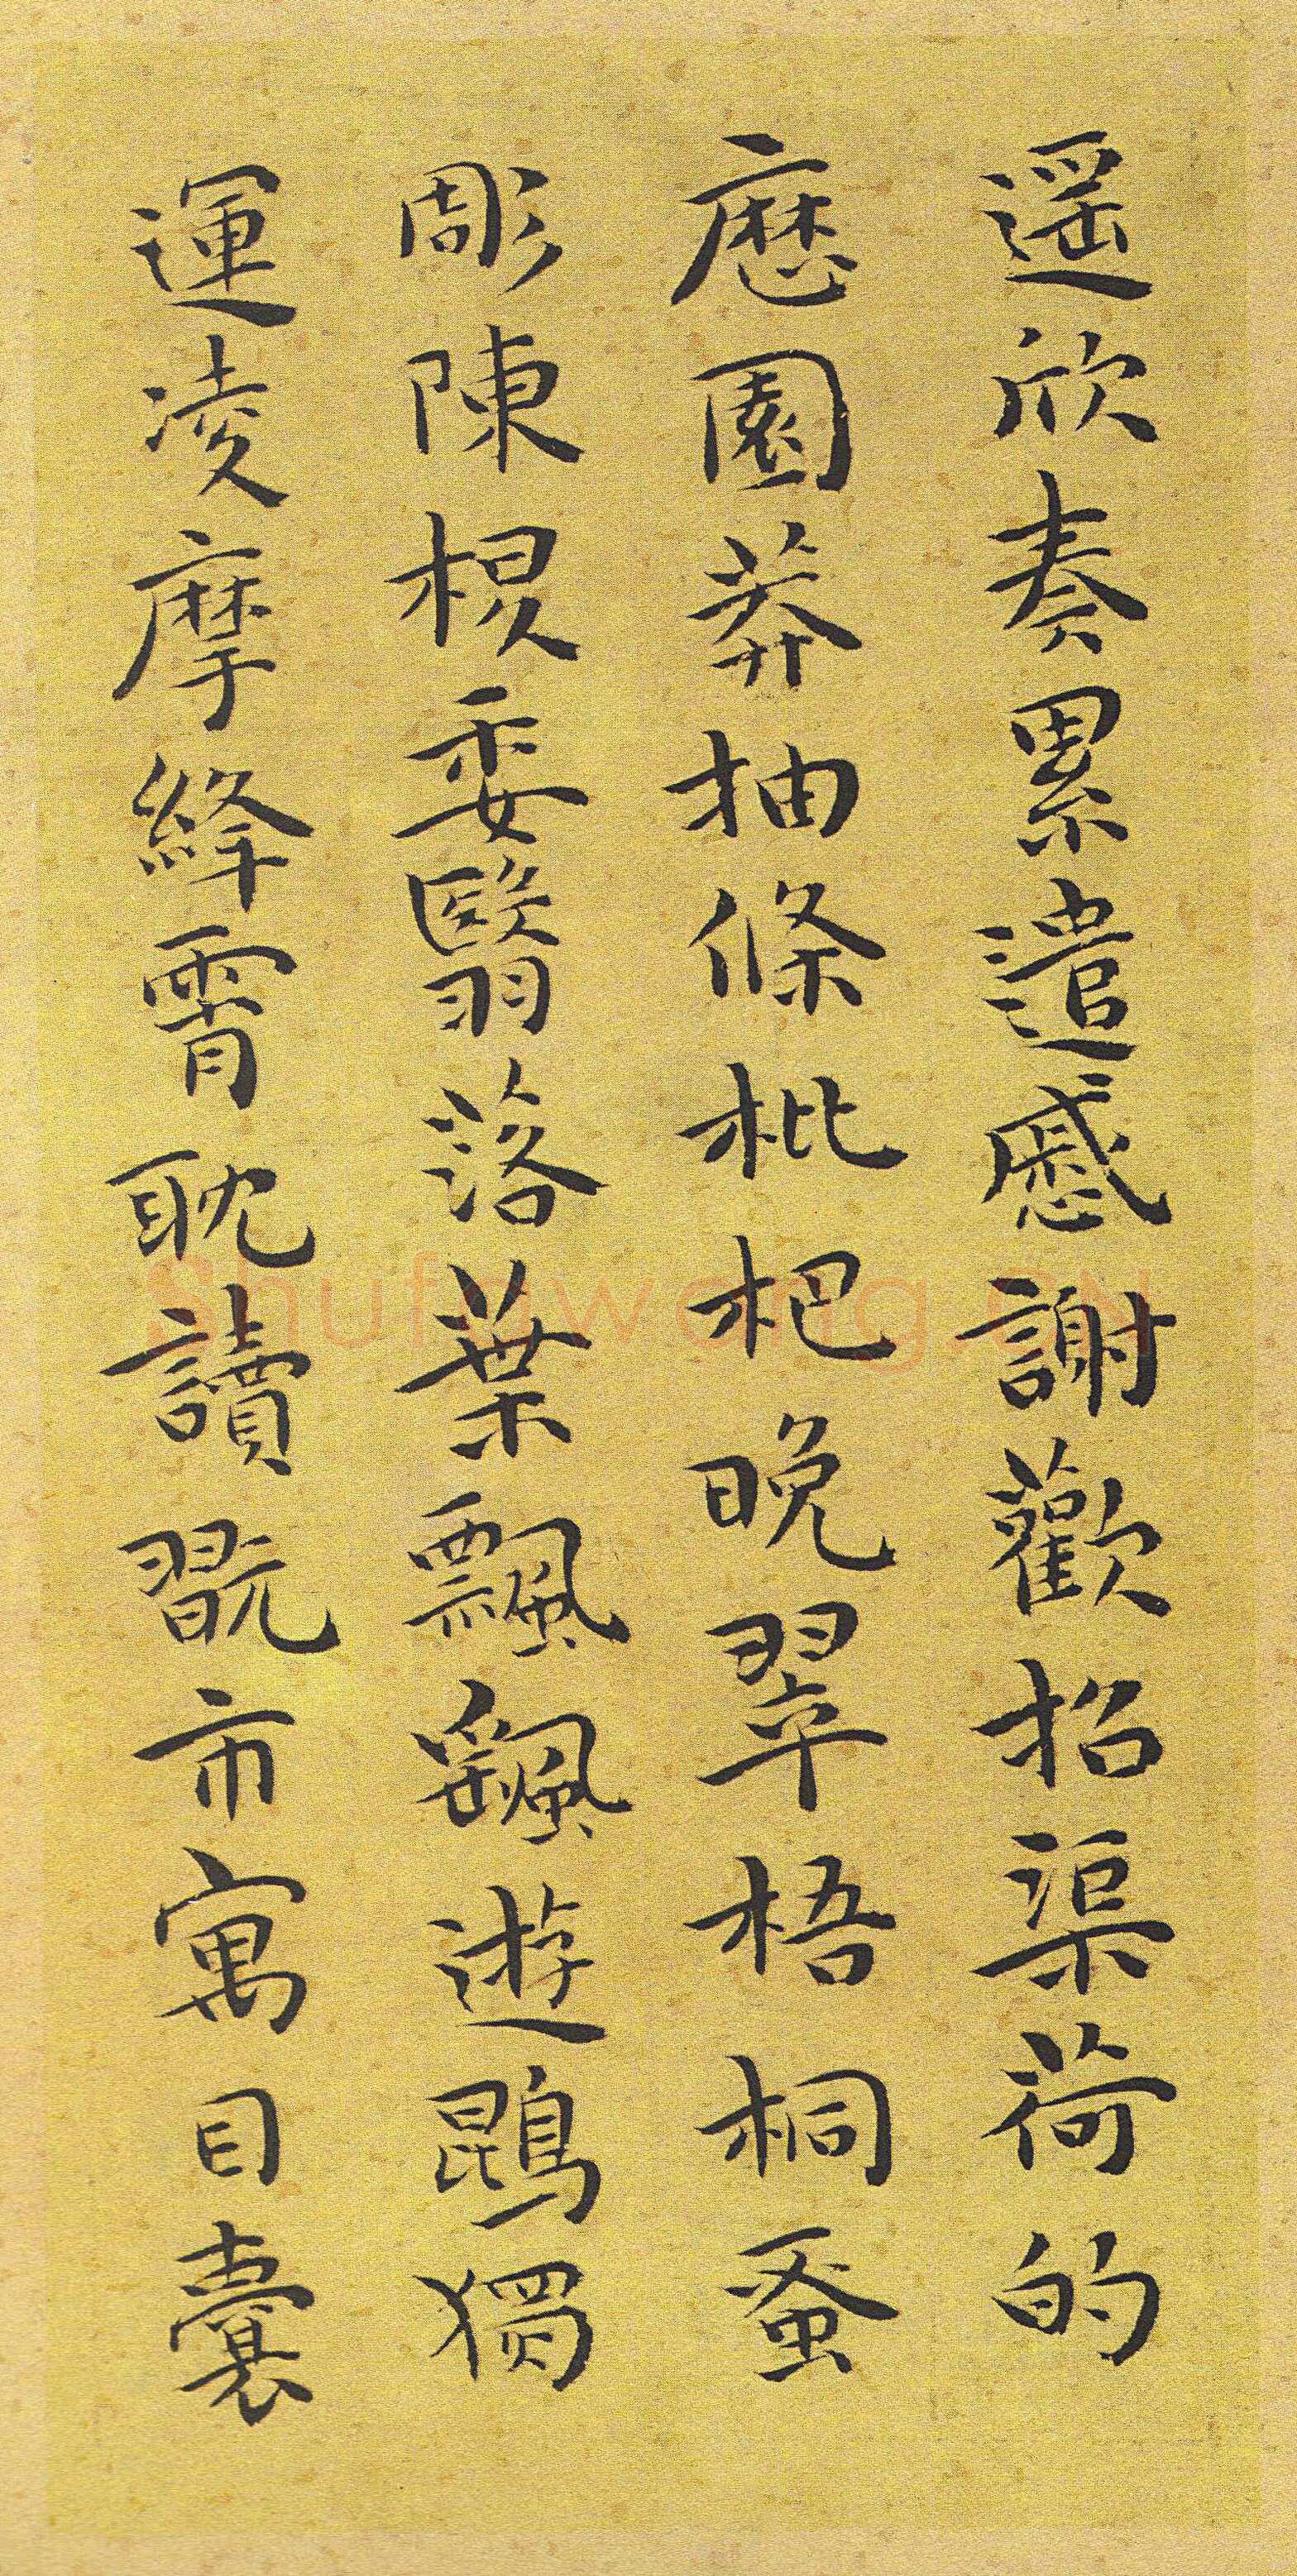 遥欣奏累遣慼謝歡招渠荷的
歷園莽抽條枇杷晚翠梧桐蚤
彫陳根委翳落葉飄颻遊鵾獨
運凌摩絳霄耽讀翫市寓目囊
Shufawang.CN